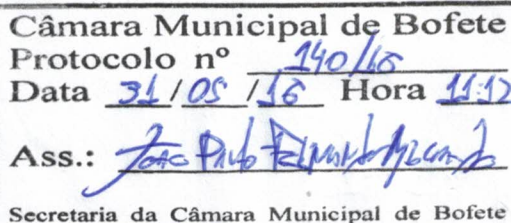 Câmara Municipal de Bofete
Protocolo nº 140/16
Data 31/05/16 Hora 11:12
Ass.: João Paulo
Secretaria da Câmara Municipal de Bofete